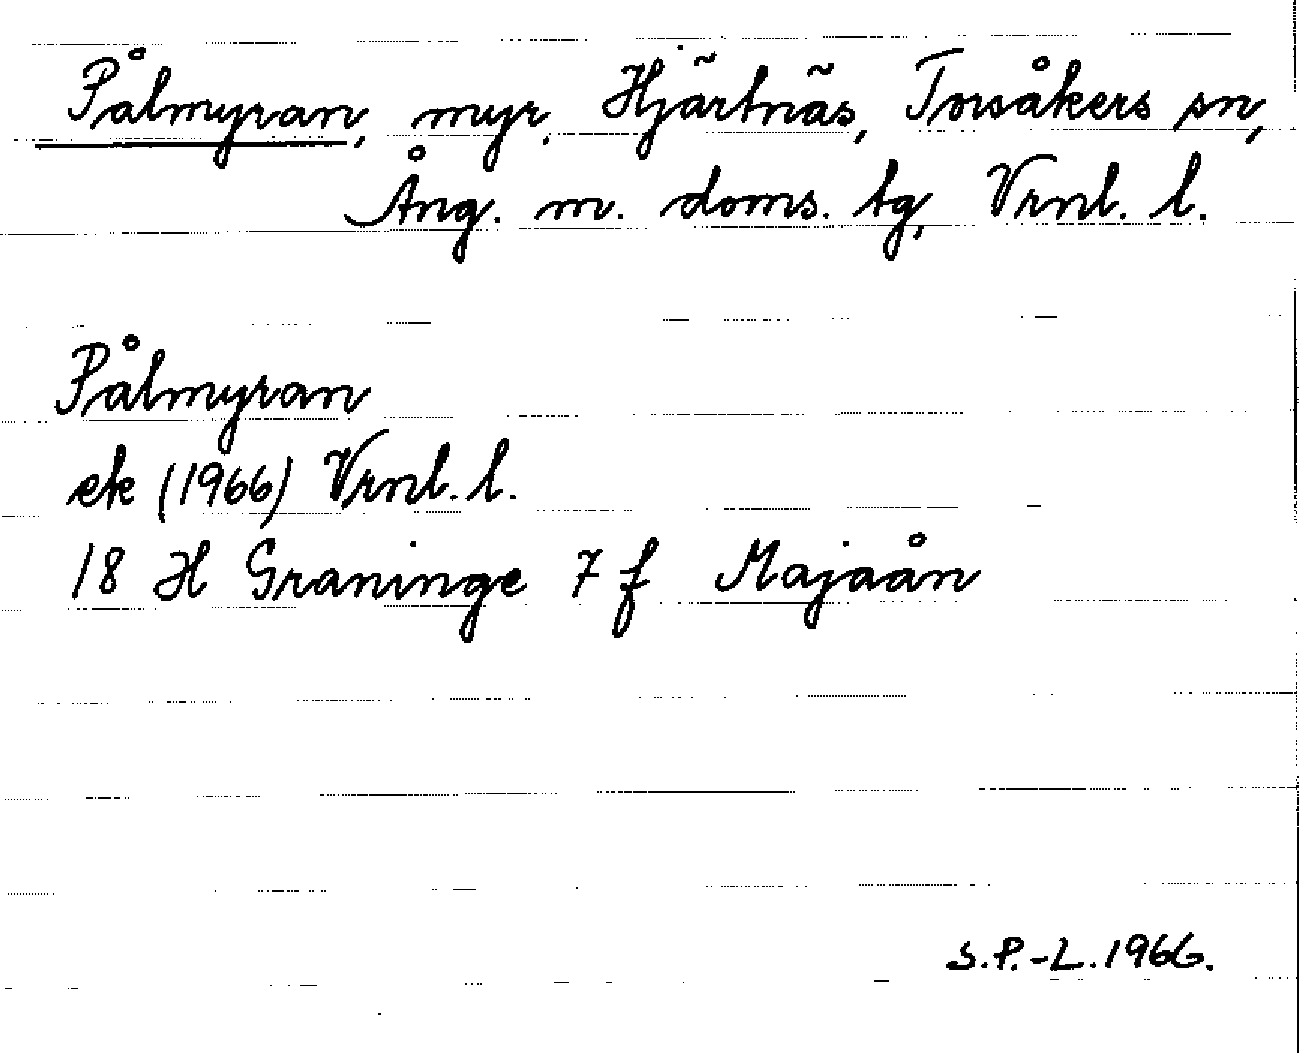 Pålmyran, myr. Hjärtnäs, Torsåkers sn,
Ång. m. doms. tg, Vrnl. l.
Pålmyran
ek (1966) Vrnl. l.
18 H Graninge 7 f Majaån
S.P.-L. 1966.